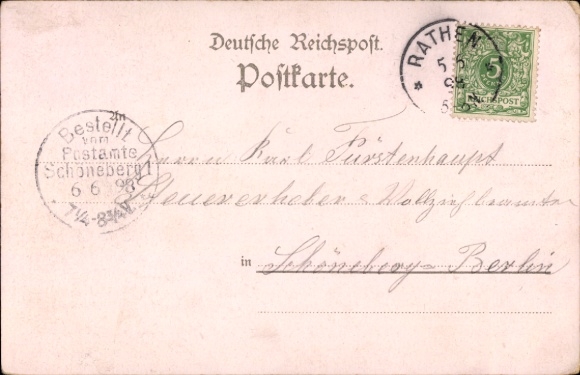 Deutsche Reichspost.
Postkarte.
* RATHEN
5 6
98
5
REICHSPOST
An
Bestellt
vom
Postamte
Schöneberg 1
6 6 98
7¼-8¾V.
Herrn Karl Fürstenhaupt
Steuererheber u Vollziehbeamter
in Schöneberg-Berlin